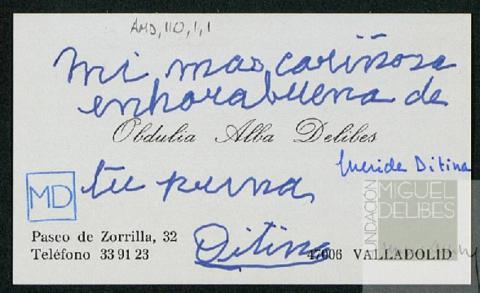 AMD, 110, 1, 1
Mi mas cariñosa
enhorabuena de
Obdulia Alba Delibes
Querida Ditina
MD
tu prima
Ditina
Paseo de Zorrilla, 32
Teléfono 33 91 23
47006 VALLADOLID
FUNDACIÓN
MIGUEL
DELIBES